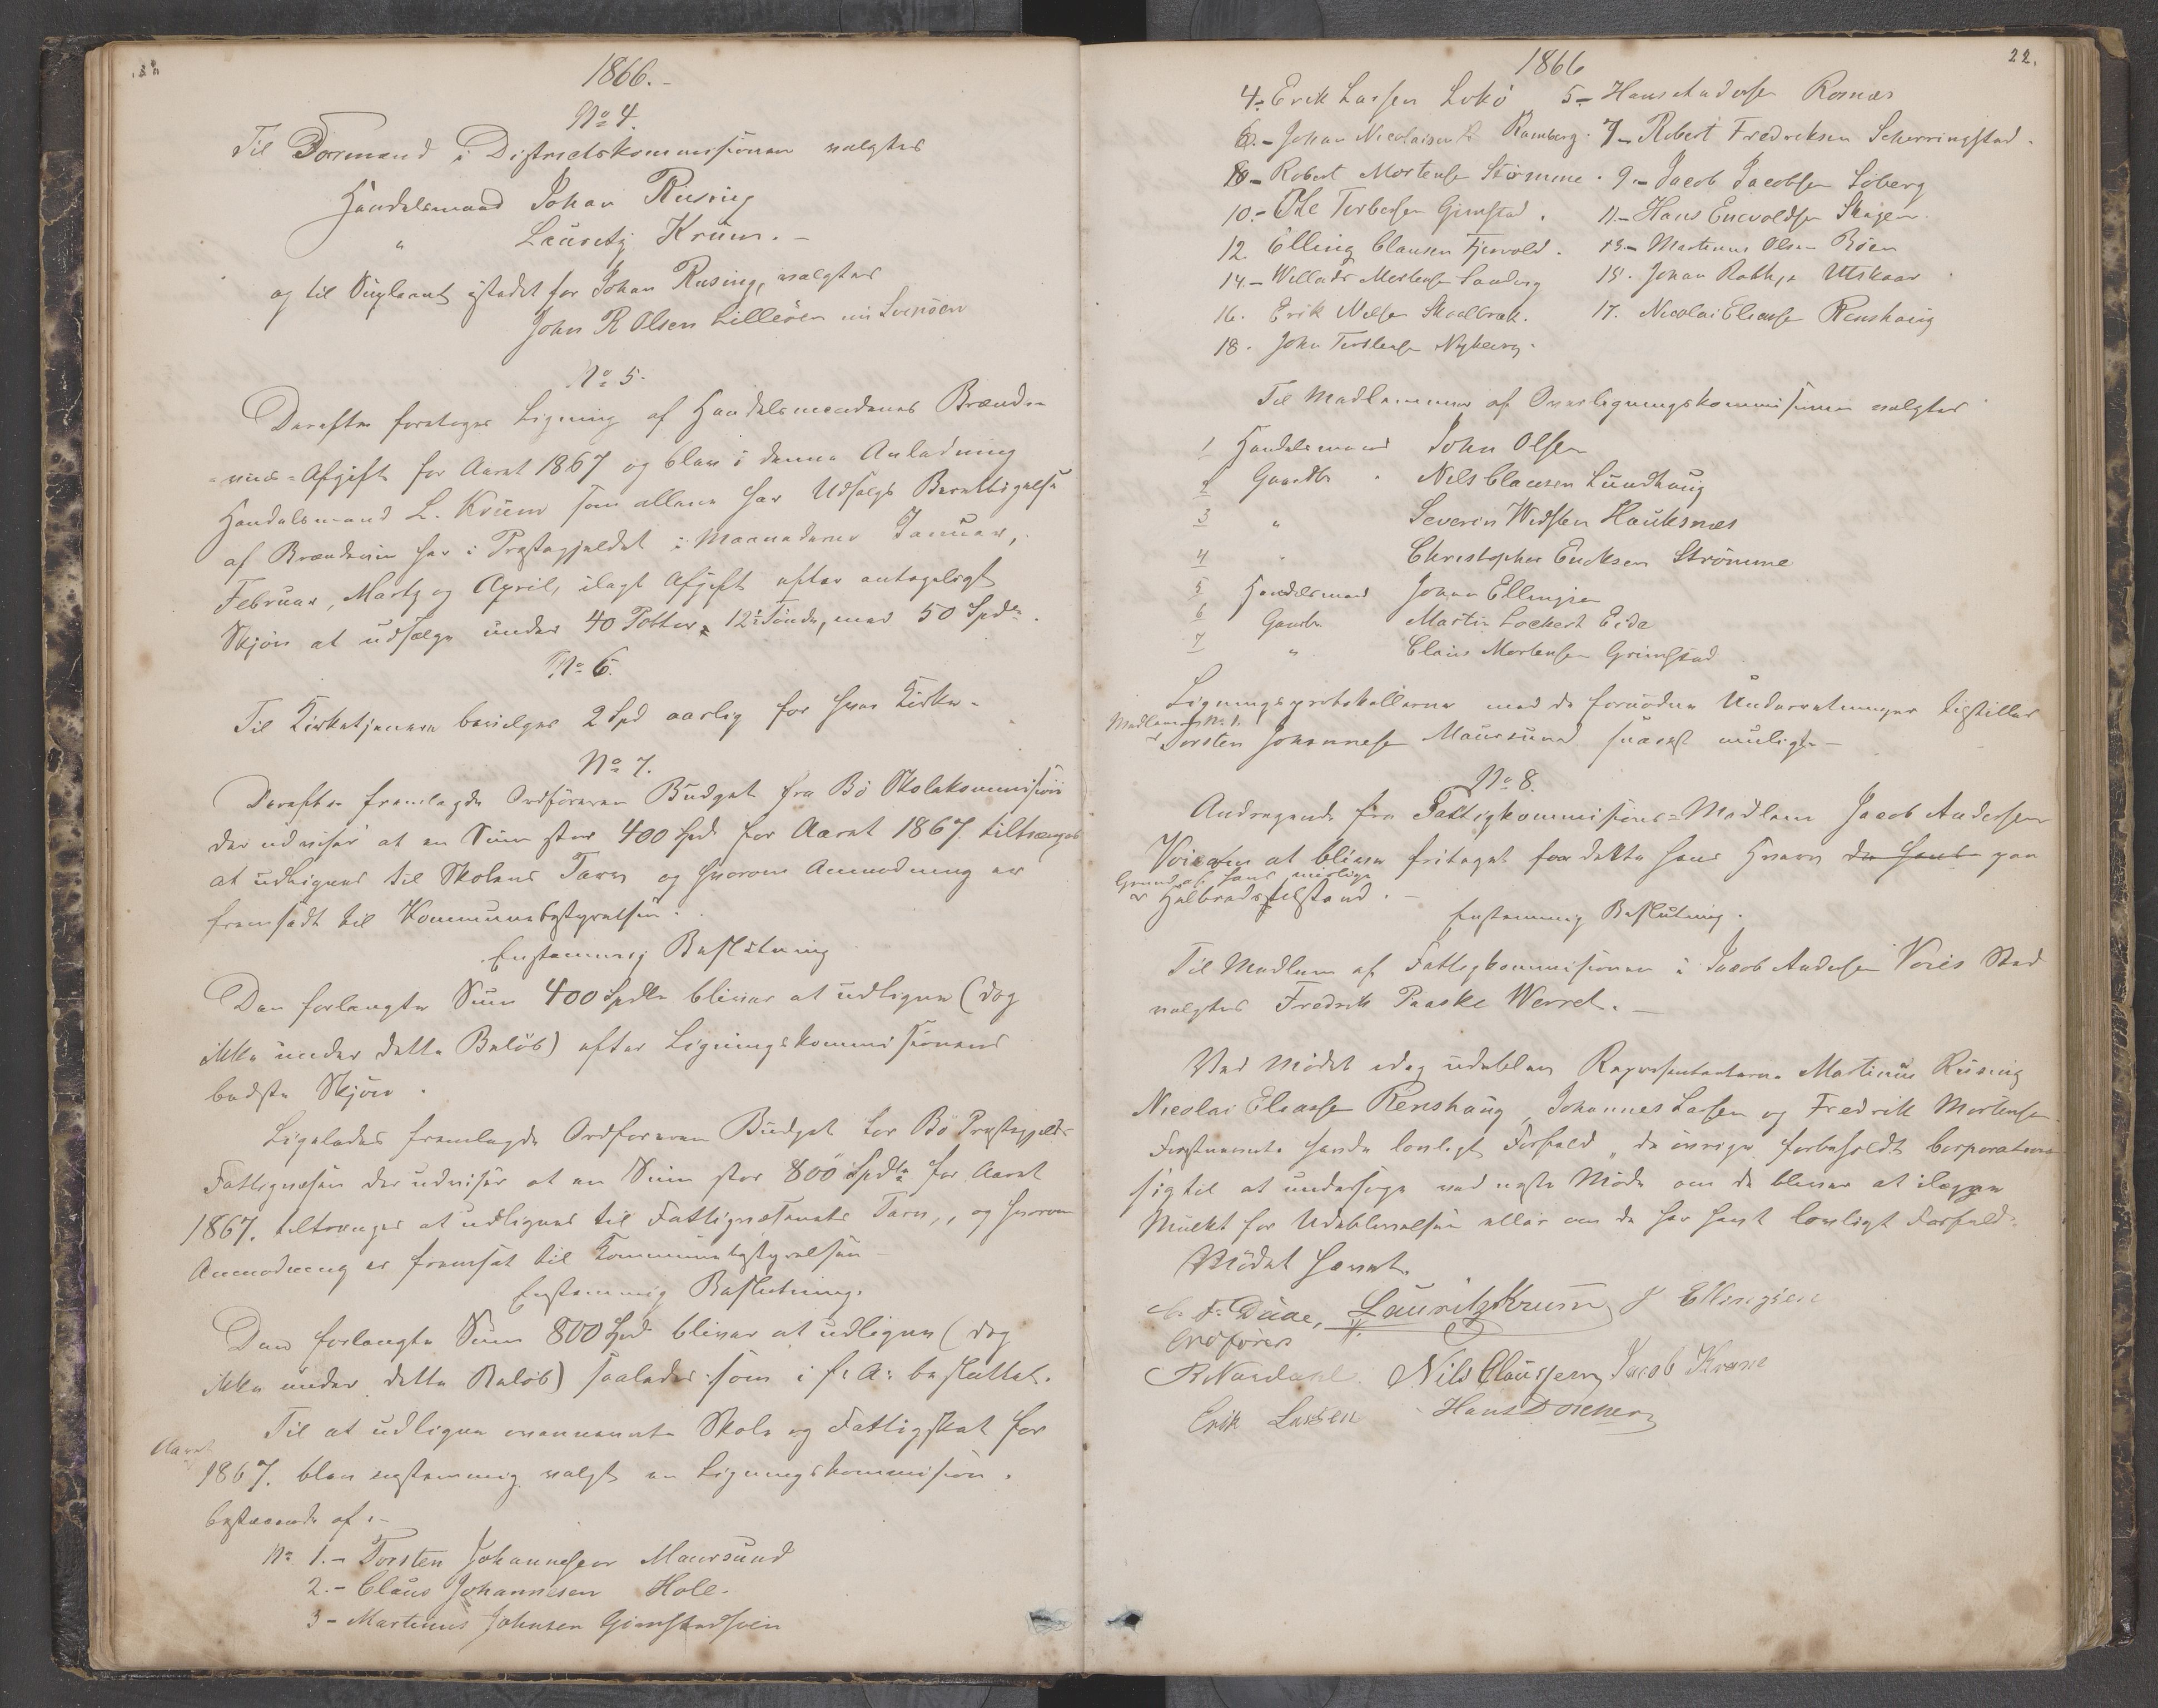 1866.-
No 4.
Til Formænd i Districtskommisionen valgtes
Handelsmand Johan Rising
" Lauritz Krüm. -
og til Supleant istedet for Johan Rising, valgtes
John R Olsen Lilleöen
No 5.
Derefter foretoges Ligning af Handelsmendenes Brænde-
=viins=Afgift for Aaret 1867 og blev i denne Anledning
Handelsmand L. Krüm som allene har Udsalgs Berettigelse
af Brændeviin her i Præstegjeldet i Maanederne Januar,
Februar, Martz og April, ilagt Afgift efter antageligt
Skjön at udsælge under 40 Potter, 12te Tönde, med 50 Spdr.
No 6.
Til Kirketjenere bevilges 2 Spd aarlig for hver Kirke.
No 7.
Derefter fremlagde Ordföreren Budget fra Bö Skolekommision
der udviser at en Sum stor 400 Spd for Aaret 1867 tiltrænges
at udlignes til Skolens Tarv og hvorom Anmodning er
fremsadt til Kommunebestyrelsen.
Enstemmig Beslutning
Den forlangte Sum 400 Spdlr bliver at udligne (dog
ikke under dette Belöb) efter Ligningskommisionens
bedste Skjön.
Ligeledes fremlagde Ordföreren Budget for Bö Præstegjelds
Fattigvæsen der udviser at en Sum stor 800 Spdlr for Aaret
1867. tiltrænges at udlignes til Fattigvæsenets Tarv, og hvorom
Anmodning er fremsat til Kommunebestyrelsen -
Enstemmig Beslutning.
Den forlangte Sum 800 Spd bliver at udligne (dog
ikke under dette Belöb) saaledes som i f: A: besluttet.
Til at udligne ovennevnte Skole og Fattigskat for
Aaret
1867. blev enstemmig valgt en Ligningskommision.
bestaaende af:-
No 1.- Torsten Johannesen Maursund
2.- Claus Johannesen Hole.
3- Martinus Johnsen Gimstadsven
1866
22.
4.- Erik Larsen Lokö 5- Hans Andersen Romnes
6.- Johan Nicolaisen Ramberg. 7- Robert Fredriksen Scherringstad.
8- Robert Mortensen Strömme. 9.- Jacob Jacobsen Löberg
10.- Ole Torbersen Gimstad. 11.- Hans Enevoldsen Skagen
12. Elling Clausen Fjervold. 13.- Martinus Olsen Böen
14.- Willads Mortensen Sandvig 15. Johan Rathje Utskaar
16. Erik Nilsen Skaalbræk. 17. Nicolai Eliasen Renshaug
18. John Torstensen Nyberg.
Til Medlemmer af Overligningskommisionen valgtes
1 Handelsmand John Olsen
2 Gaardbr. Nels Clausen Lundhaug
3 " Severin Widsten Hauksnes
4 " Christopher Ericksen Strömme
5 Handelsmand Johan Ellingsen
6 Gaardbr. Martin Lockert Eide
7 " Claus Mortensen Grimstad
Ligningsprotokollerne med de fornödne Underretninger tilstilles
Medlem No 1.
Torsten Johannesen Maursund snarest muligt. -
No 8.
Andragende fra Fattigkommisions=Medlem Jacob Andersen
Voie om at blive fritaget for dette hans Hverv da hans paa
Grund af hans mislige
Helbredstilstand. -
Enstemmig Beslutning.
Til Medlem af Fattigkommisionen i Jacob Andersen Voies Sted
valgtes Fredrik Paaske Werret. -
Ved Mödet idag udeblev Representanterne Martinus Rising
Nicolai Eliasen Renshaug, Johannes Larsen og Fredrik Mortensen.
Förstnevnte havde lovligt Forfald, de övrige forbeholdt Corporationen
sig til at undersöge ved neste Möde om de bliver at ilægge
Mulkt for Udeblivelsen eller om de har havt lovligt Forfald.
Mödet hævet.
C. F. Düae, Lauritz Krüm J Ellingsen
Ordförer
Nils Claussen Jacob Krane
Erik Larsen